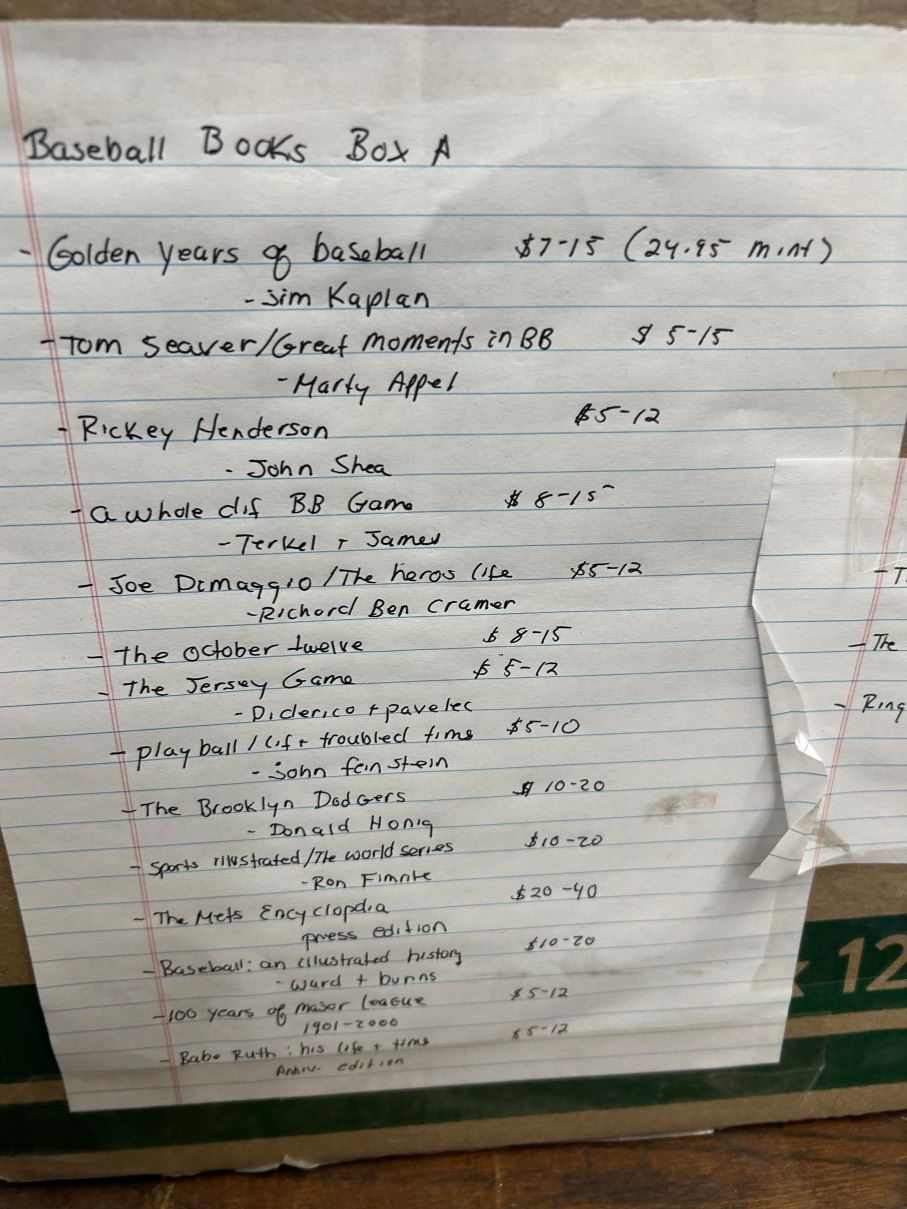 Baseball Books Box A
- Golden years of baseball $7-15 (24.95 mint)
- Jim Kaplan
- Tom Seaver/Great moments in BB $5-15
- Marty Appel
- Rickey Henderson $5-12
- John Shea
- a whole dif BB Game $8-15
- Terkel + James
- Joe Dimaggio/The heros life $5-12
- Richard Ben Cramer
- The October twelve $8-15
- The Jersey Game $5-12
- Diclerico + pavelec
- play ball/lif + troubled tims $5-10
- john feinstein
- The Brooklyn Dodgers $10-20
- Donald Honig
- Sports illustrated/The world series $10-20
- Ron Fimrite
- The Mets Encyclopdia $20-40
press edition
- Baseball: an illustrated history $10-20
- ward + burns
- 100 years of major league $5-12
1901-2000
- Babe Ruth: his life + tims $5-12
Anniv. edition
- The
- Ring
12